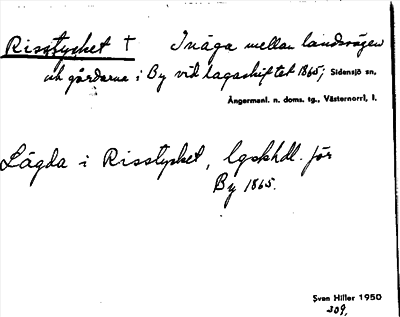 Risstycket † Inäga mellan landsvägen
och gårdarna i By vid lagaskiftet 1865; Sidensjö sn,
Ångermanl. n. doms. tg., Västernorrl. l.
Lägda i Risstycket, lgskhdl. för
By 1865.
Sven Hiller 1950
309,